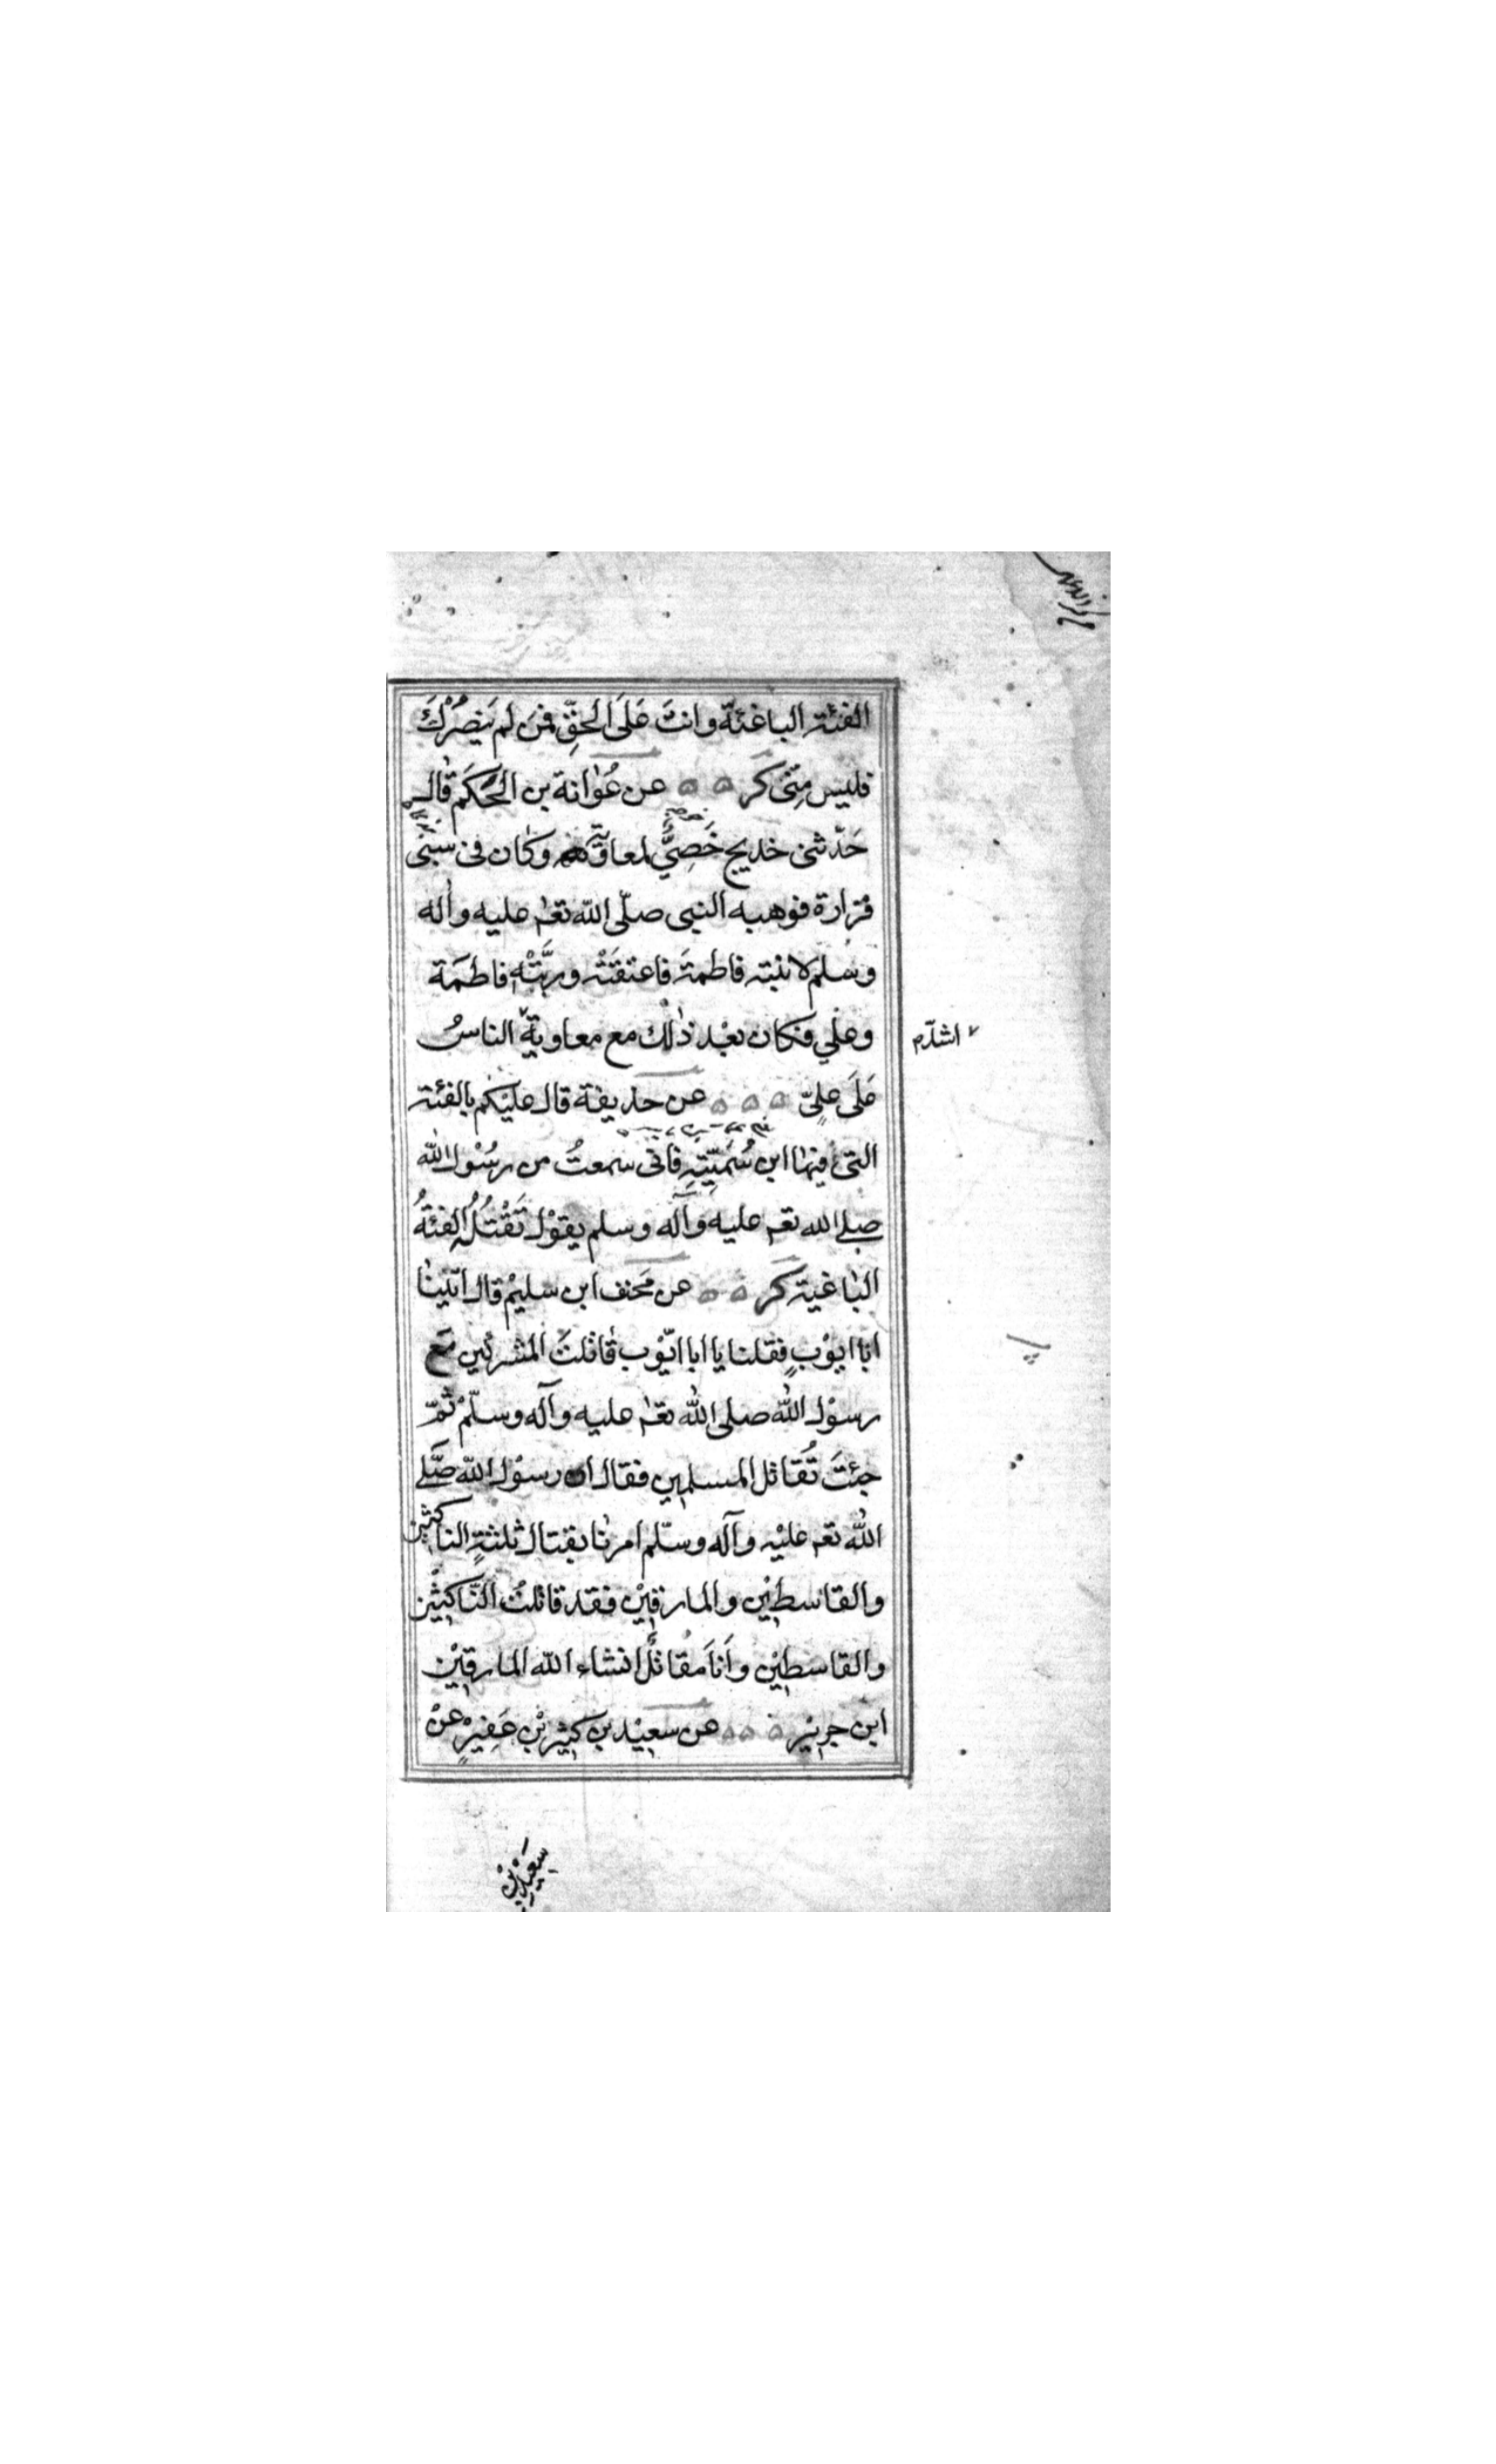 الفئة الباغئة وانتَ عَلَى الحقِّ فمَن لم يَنصُرْكَ
فليس مِنّى كر عن عُوانة بن الحَكَم قال
حَدّثنى خديج خَصِيٌّ لمعاوية وكان فى سبْى
فزارة فوهبه النبى صلّى الله تعٰه عليه واٰله
وسلم لابنته فاطمةَ فاعتقَتْه وربَّتْه فاطمَة
وعلي فكان بعْد ذٰلك مع معاوية الناسُ
اشدّم
عَلَى علِيّ عن حذيفة قال عليْكم بالفئة
التى فيها ابن سُمَيّة فانى سمعتُ من رسُوْل الله
صلى الله تعٰه عليه وآله وسلم يقوْل تَقْتُلُه الفئةُ
الباغية كر عن مخنف ابن سليمْ قال اتينا
ابا ايوْب فقلنا يا ابا ايّوْب قاتلتَ المشركين مَع
رسوْل الله صلى الله تعٰه عليه وآله وسلّمْ ثمّ
جئتَ تُقاتل المسلمين فقال ان رسوْل الله صَلّى
الله تعٰه عليْه وآله وسلّم امرنا بقتال ثلثةٍ الناكثين
والقاسطيْن والمارقيْن فقد قاتلتُ النّاكثيْن
والقاسطيْن واَناَ مقاتلٌ انشاء الله المارقيْن
ابن جرير عن سعيْد بن كثير بْن عفيرْ عنْ
سعيد بن